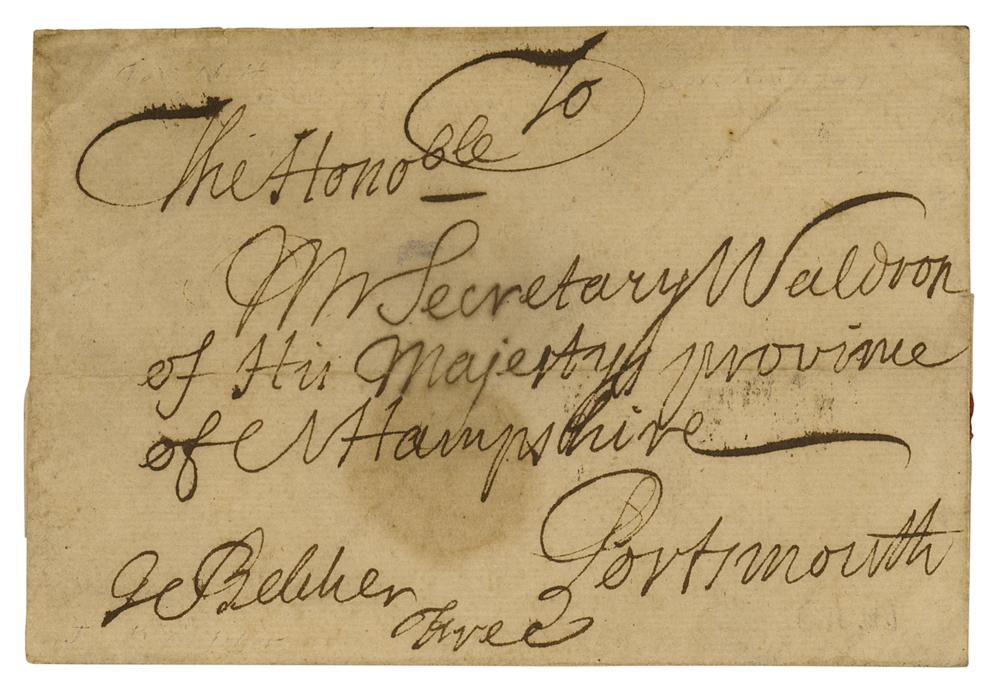 To
The Honoble
Mr Secretary Waldron
of His Majestys province
of N Hampshire
Portsmouth
J Belcher
Free